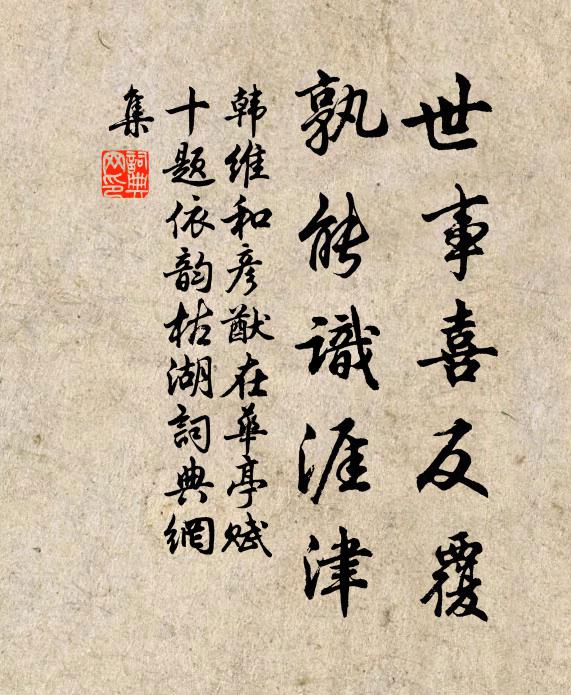 世事喜反覆
孰能識涯津
韩维和彦猷在華亭赋
十题依韵枯湖詞典網
集
詞典網印